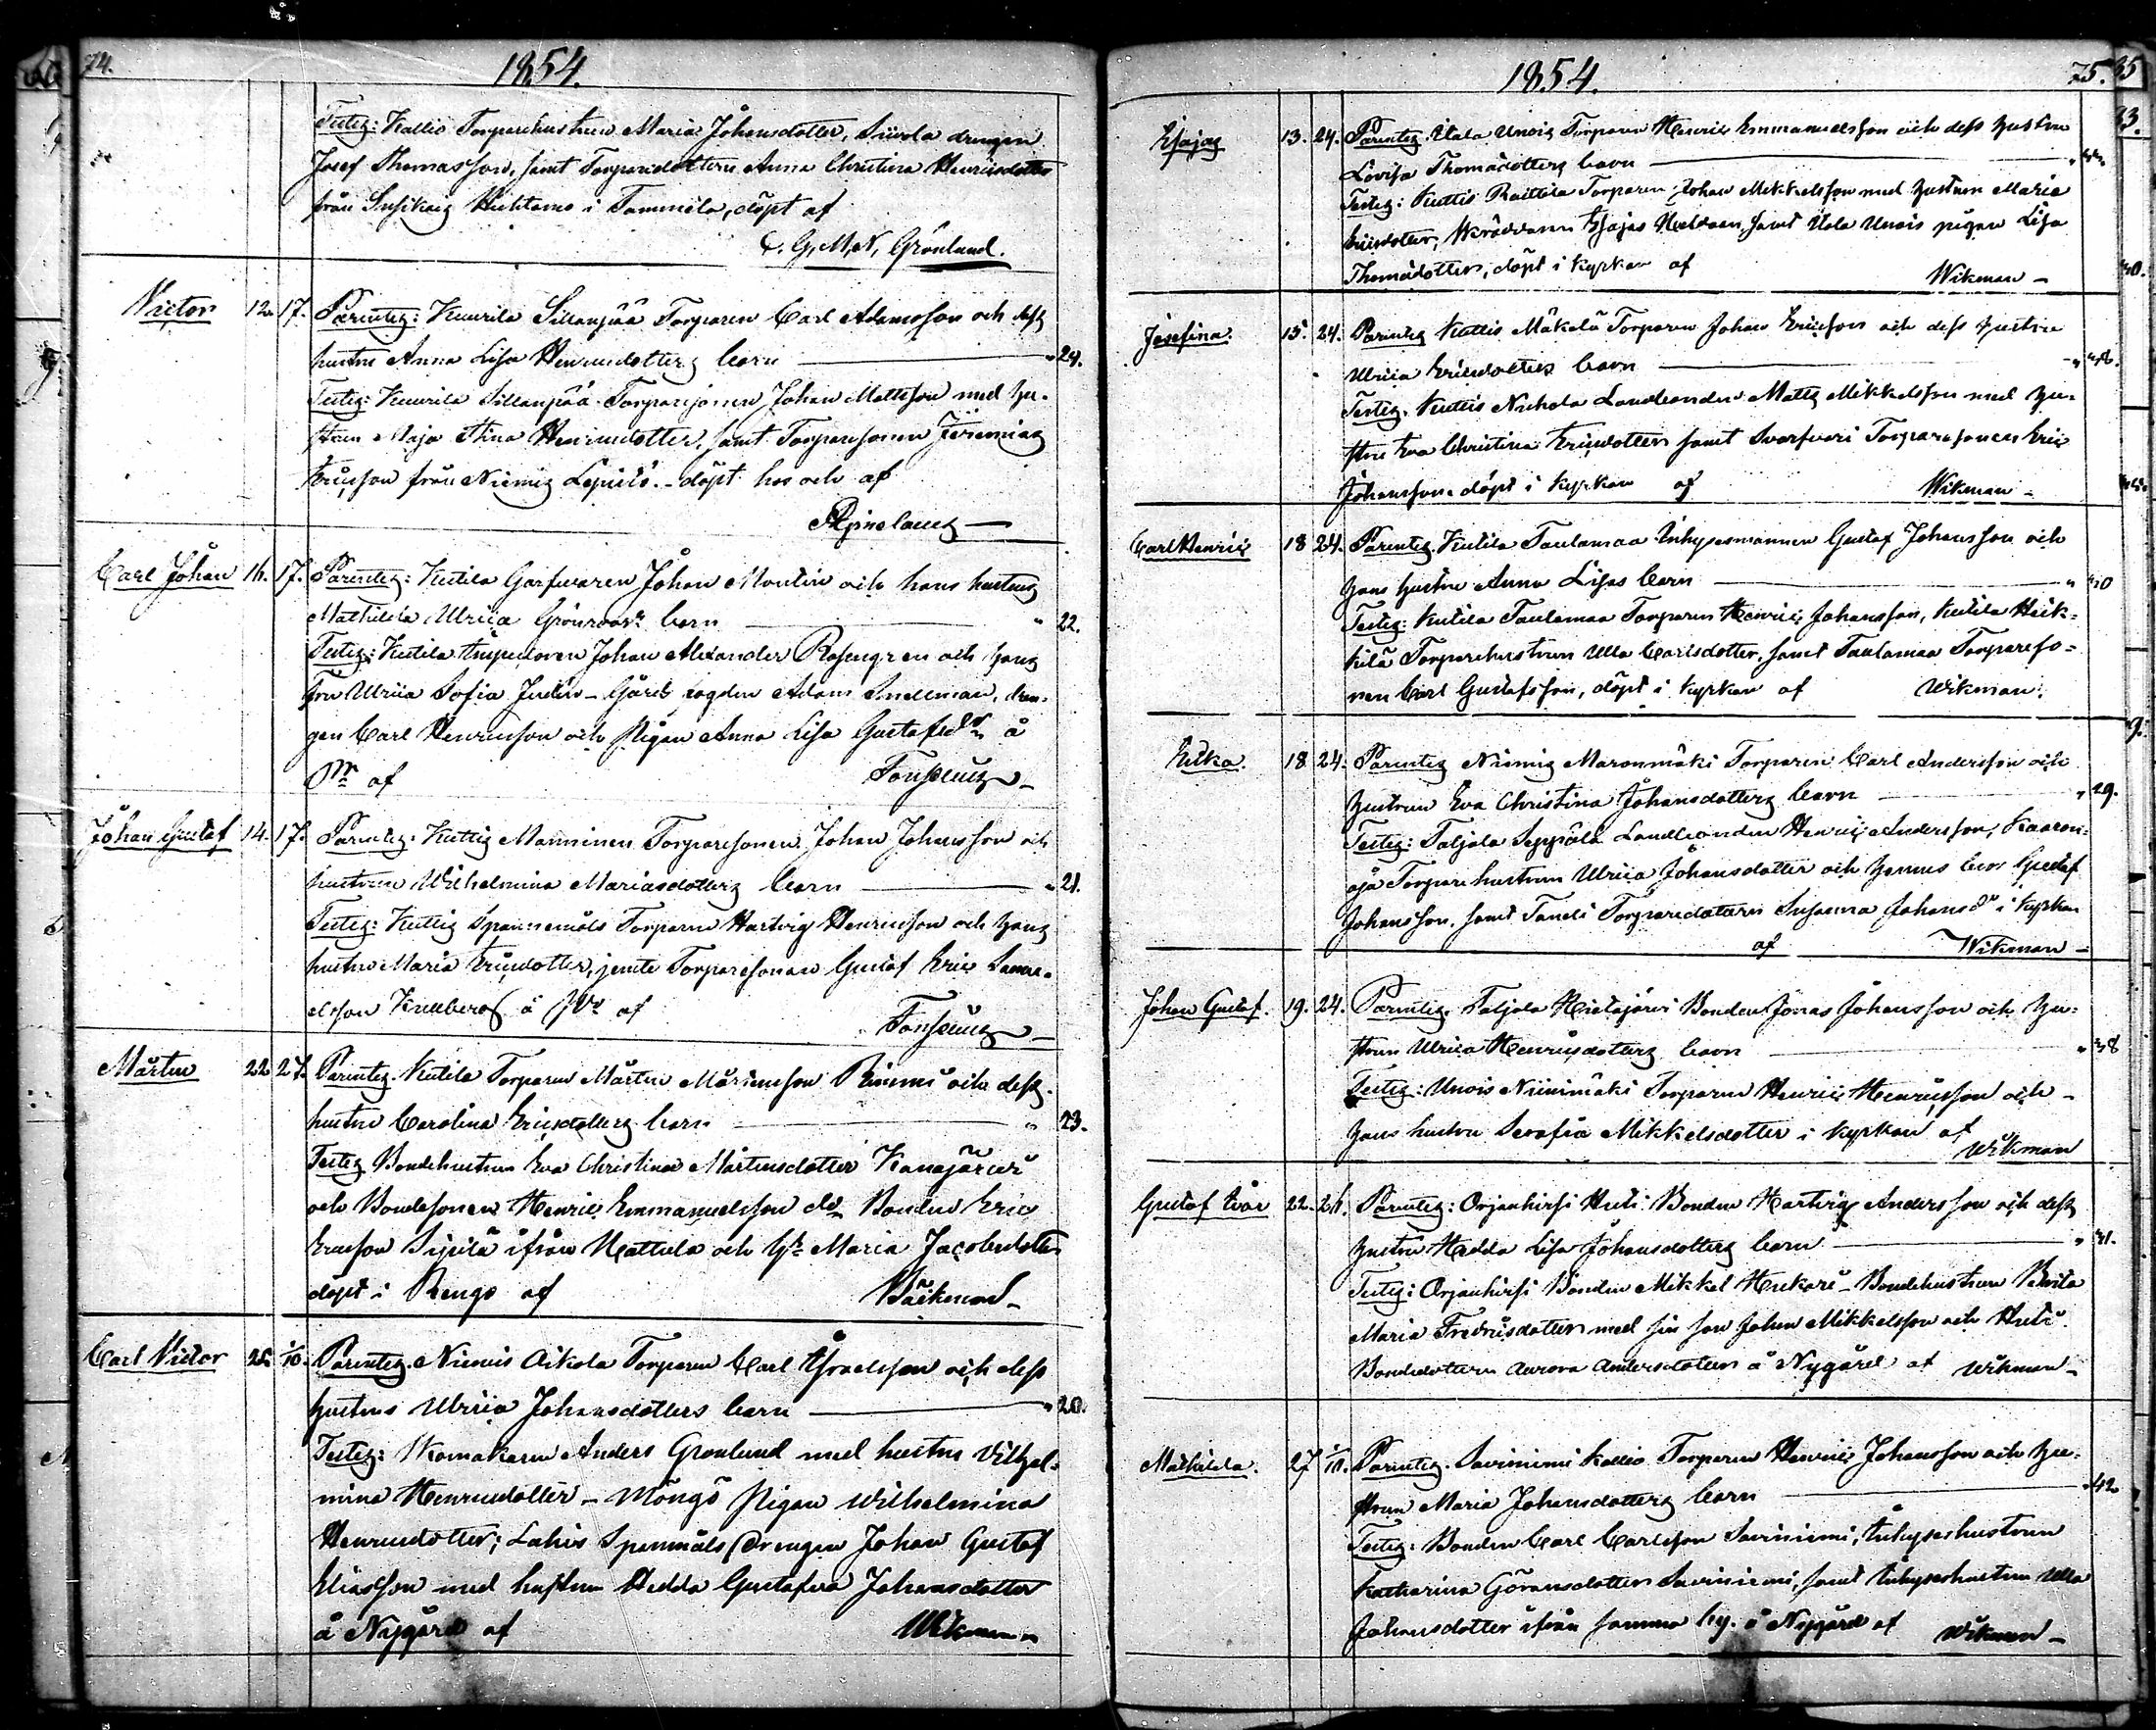 74.
1854.
Testes: Kallio Torparehustrun Maria Johansdotter, drengen
Josef Thomasson, samt Torparedottern Anna Christina Henricsdotter
från Susikais i Tammela, döpt af
Grönlund.
Victor 12. 17. Parentes: Kuurila Sillanpää Torparen Carl Adamsson och dess
hustru Anna Lisa Henricsdotters barn " 24.
Testes: Kuurila Sillanpää Torparesonen Johan Mattsson med hu-
strun Maja Stina Henricsdotter, samt Torparesonen Jeremias
Ericsson från Niemis döpt hos och af
Carl Johan 16. 17. Parentes: Kutila Garfvaren Johan och hans hustrus
Mathilda Ulrica barn " 22.
Testes: Kutila Inspectoren Johan Alexander Rosengren och hans
Fru Ulrica Sofia Gårds fogden Adam Snellman, dren-
gen Carl Henricsson och Pigan Anna Lisa Gustafsdr å
af
Johan Gustaf 14. 17. Parentes: Kuttis Manninen Torparesonen Johan Johansson och
hustrun Wilhelmina Mariasdotters barn " 21.
Testes: Kuttis Spannemåls Torparen Hartvig Henricsson och hans
hustru Maria Ericsdotter, jemte Torparesonen Gustaf Eric Samu-
elsson å af
Mårten 22 27. Parentes. Kutila Torparen Mårten Mårtensson och dess
hustru Carolina Ericsdotters barn " 23.
Testes Bondehustrun Eva Christina Mårtensdotter Kanajärvi
och Bondesonen Henric Emmanuelsson do Bonden Eric
Ericsson Sipilä ifrån Hattula och Maria Jacobsdotter
döpt i Rengo af Bäckman
Carl Victor 25. 1/10. Parentes. Niemis Aikola Torparen Carl Israelsson och dess
hustrus Ulrica Johansdotters barn " 20.
Testes: Skomakaren Anders Gronlund med hustru Vilhel-
mina Henricsdotter - Mongo Pigan Wilhelmina
Henricsdotter; Lahis Spanmåls Drengen Johan Gustaf
Eliasson med hustrun Hedda Gustafva Johansdotter
å Nygård af Wikman
1854.
75.
Esajas 13. 24. Parentes. Uttala Unois Torparen Henric Emmanuelsson och dess hustru
Lovisa Thomasdotters barn
Testes: Kuttis Raittila Torparen Johan Mikkelsson med hustrun Maria
Ericsdotter, Skräddaren Esajas samt Unois pigan Lisa
Thomasdotter, döpt i kyrkan af Wikman
Josefina. 15. 24. Parentes Kuttis Mäkelä Torparen Johan Ericsson och dess hustru
Ulrica Ericsdotters barn
Testes. Kuttis Landbonden Matts Mikkelsson med hu-
stru Eva Christina Ericsdotter samt Torparesonen Eric
Johansson. döpt i kyrkan af Wikman
Carl Henric 18 24. Parentes. Kutila Taulamaa Inhysesmannen Gustaf Johansson och
hans hustru Anna Lisas barn
Testes: Kutila Taulamaa Torparen Henric Johansson, Kutila Heik-
kilä Torparehustrun Ulla Carlsdotter, samt Taulamaa Torpareso-
nen Carl Gustafsson, döpt i kyrkan af Wikman.
18 24. Parentes Niemis Maronmäki Torparen Carl Andersson och
hustrun Eva Christina Johansdotters barn " 29.
Testes: Taljala Seppälä Landbonden Henric Andersson, Kaaron-
oja Torparehustrun Ulrica Johansdotter och hennes bror Gustaf
Johansson, samt Torparedottern Susanna Johansdr i kyrkan
af Wikman
Johan Gustaf. 19. 24. Parentes. Taljala Hietajärvi Bonden Jonas Johansson och hu-
strun Ulrica Henricsdotters barn " 38
Testes: Unois Niinimäki Torparen Henric Henricsson och
hans hustru Serafia Mikkelsdotter i kyrkan af
Wikman
Gustaf Ivar 22. 26. Parentes: Orjanhirsi Huti Bonden Hartvig Andersson och dess
hustru Hedda Lisa Johansdotters barn " 31.
Testes: Orjanhirsi Bonden Mikkel Heikari - Bondehustrun
Maria Fredricsdotter med sin son Johan Mikkelsson och Huti
Bondedottern Aurora Andersdotter å Nygård af Wikman
Mathilda. 27 1/10. Parentes. Saviniemi Kallio Torparen Henric Johansson och hu-
strun Maria Johansdotters barn " 42
Testes: Bonden Carl Carlsson Saviniemi, Inhyseshustrun
Katharina Göransdotter Saviniemi, samt Inhyseshustrun Ulla
Johansdotter ifrån samma by. å Nygård af Wikman